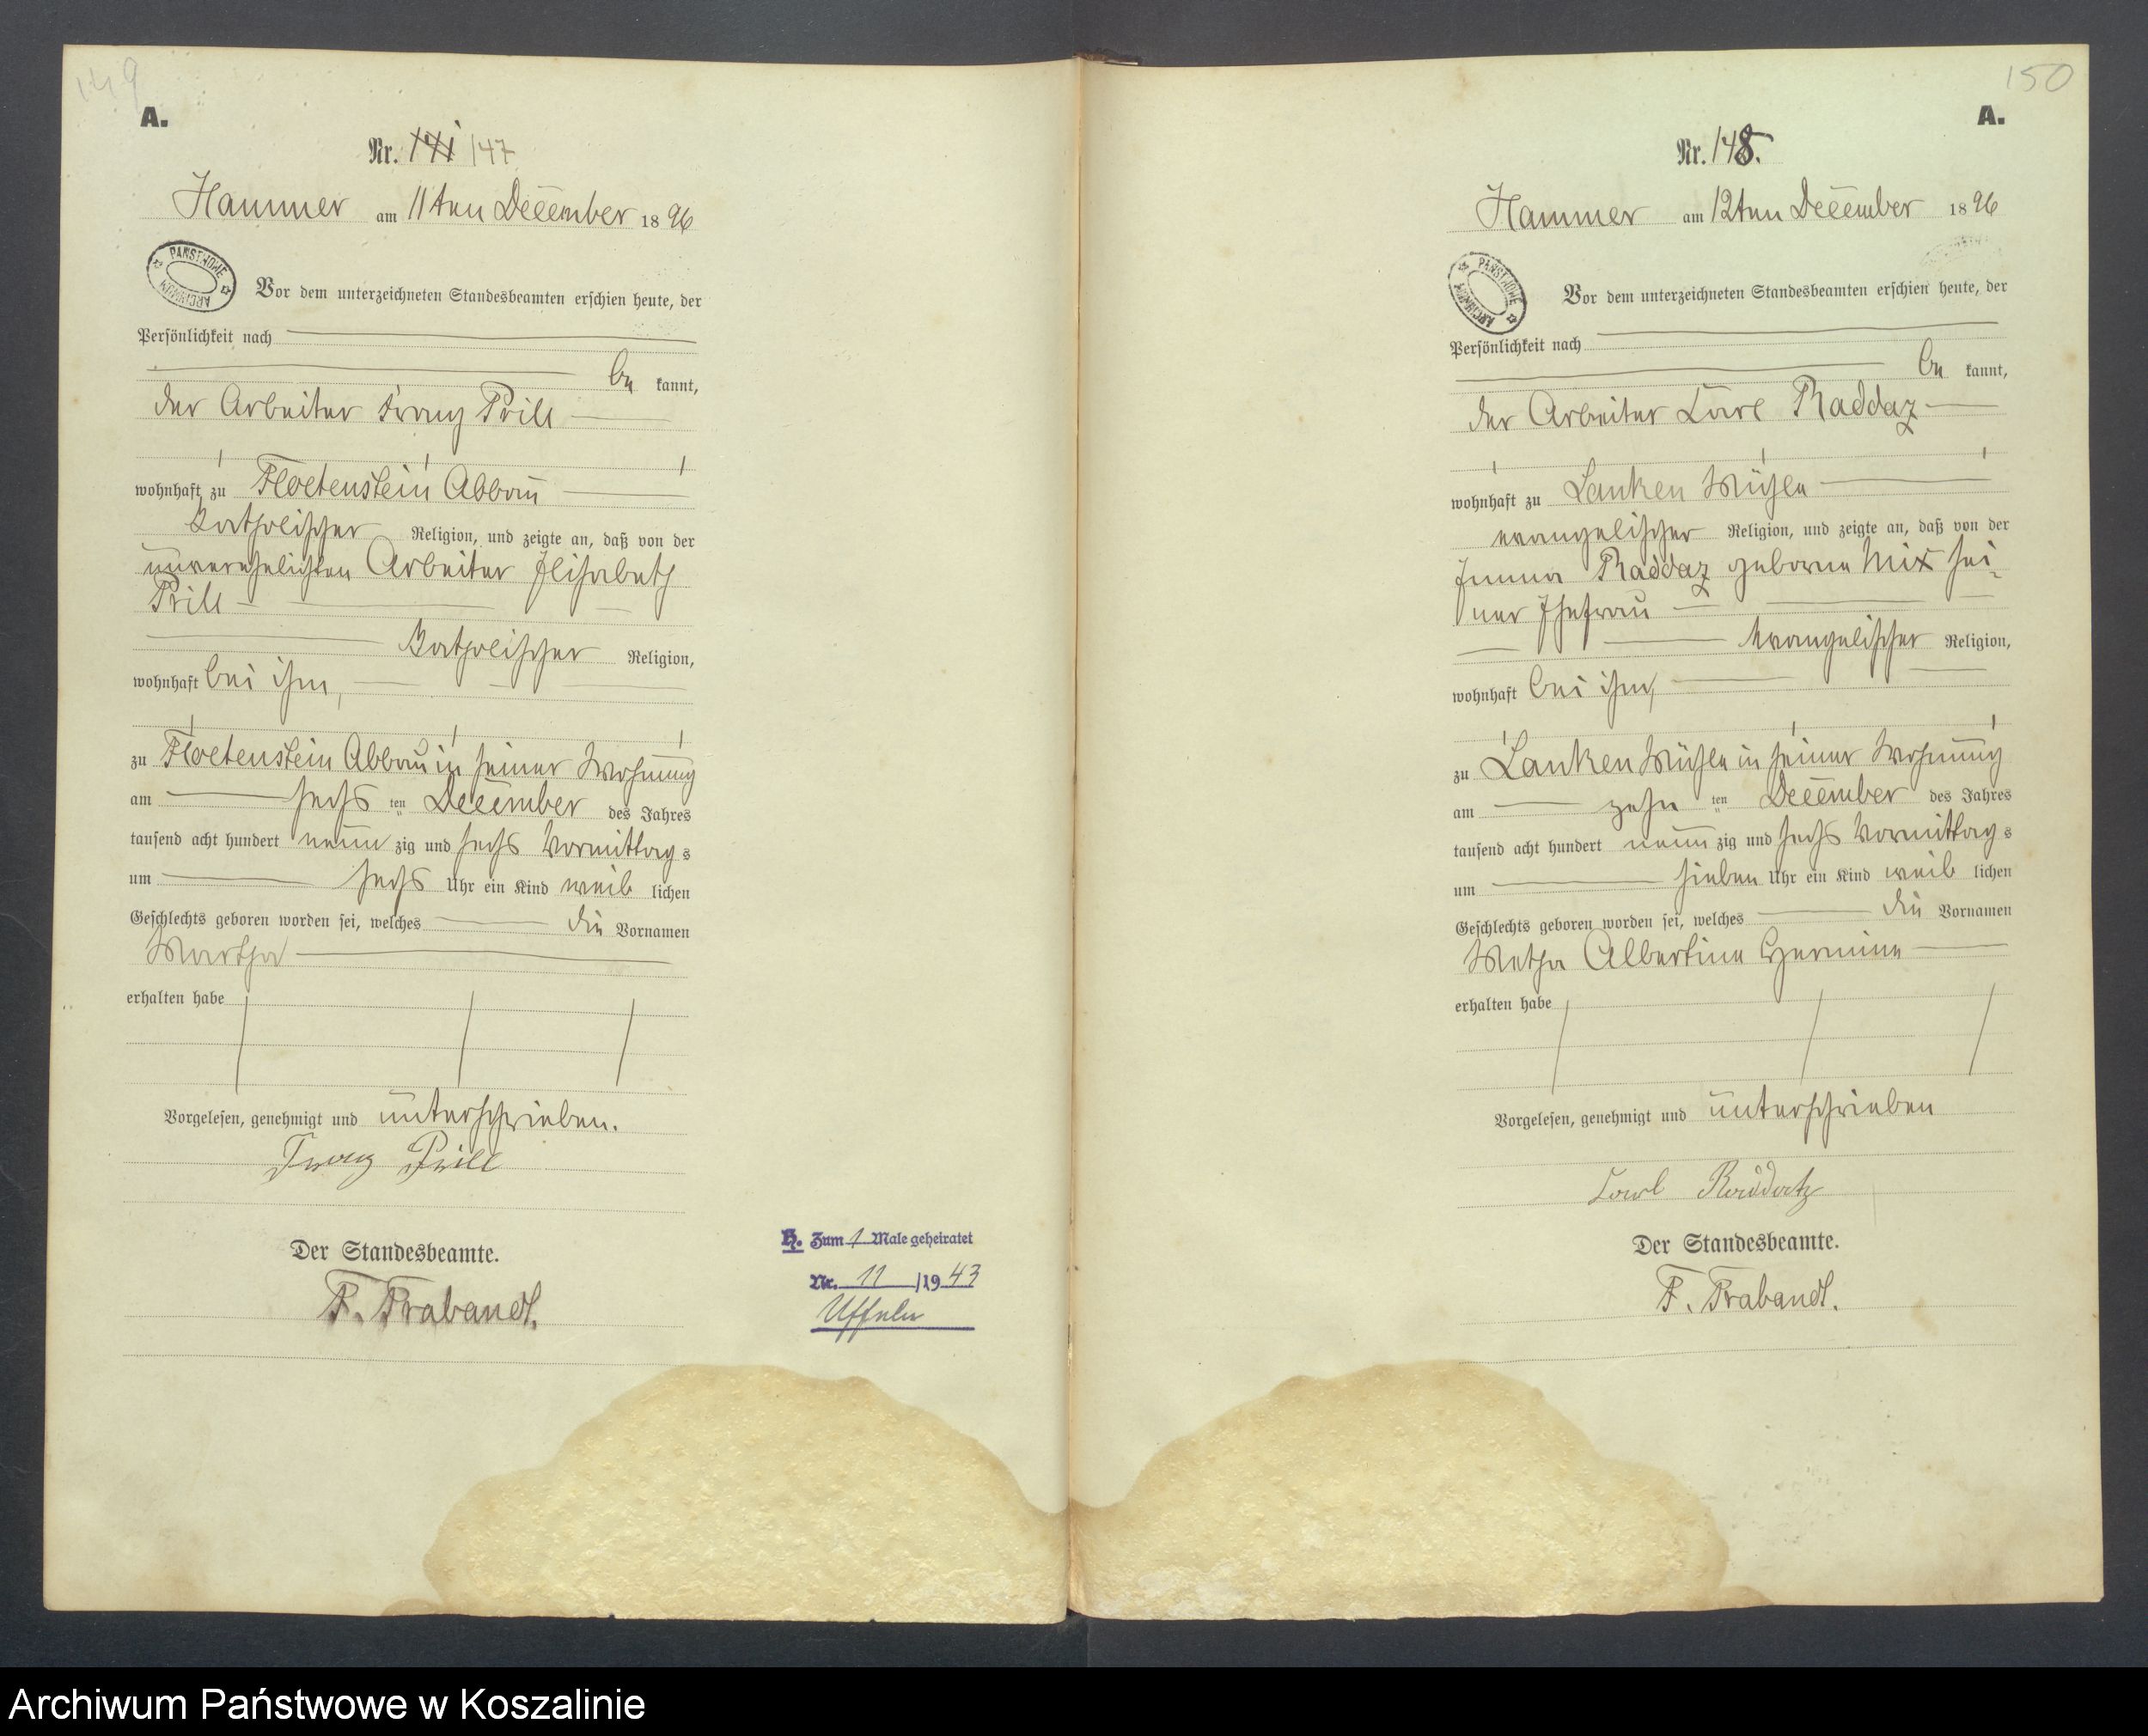 149
A.
Nr. 141 147
Hammer am 11ten December 1896
PAŃSTWOWE ARCHIWUM
Vor dem unterzeichneten Standesbeamten erschien heute, der
Persönlichkeit nach
be kannt,
der Arbeiter Franz Prill
wohnhaft zu Floetenstein Abbau
Katholischer Religion, und zeigte an, daß von der
unverehelichten Arbeiter Elisabeth
Prill
Katholischer Religion,
wohnhaft bei ihm,
zu Floetenstein Abbau in seiner Wohnung
am sechs ten December des Jahres
tausend acht hundert neun zig und sechs Vormittag s
um sechs Uhr ein Kind weib lichen
Geschlechts geboren worden sei, welches die Vornamen
Martha
erhalten habe
Vorgelesen, genehmigt und unterschrieben.
Franz Prill
Der Standesbeamte.
F. Trabandt.
H. Zum 1 Male geheiratet
Nr. 11 /1943
Uffeln
150
A.
Nr. 148.
Hammer am 12ten December 1896
PAŃSTWOWE ARCHIWUM
Vor dem unterzeichneten Standesbeamten erschien heute, der
Persönlichkeit nach
be kannt,
der Arbeiter Carl Raddaz
wohnhaft zu Lanken Mühle
evangelischer Religion, und zeigte an, daß von der
Emma Raddaz geborne Mix sei-
ner Ehefrau
evangelischer Religion,
wohnhaft bei ihm,
zu Lanken Mühle in seiner Wohnung
am zehn ten December des Jahres
tausend acht hundert neun zig und sechs Vormittag s
um sieben Uhr ein Kind weib lichen
Geschlechts geboren worden sei, welches die Vornamen
Metha Albertine Hermine
erhalten habe
Vorgelesen, genehmigt und unterschrieben
Carl Raddatz
Der Standesbeamte.
F. Trabandt.
Archiwum Państwowe w Koszalinie